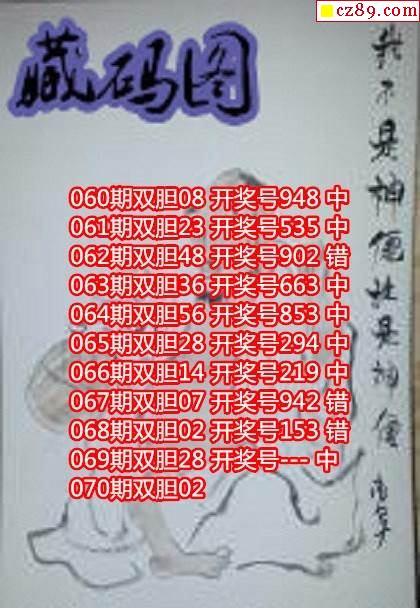 cz89.com
藏码图
我不是神僊就是神僊
060期双胆08 开奖号948 中
061期双胆23 开奖号535 中
062期双胆48 开奖号902 错
063期双胆36 开奖号663 中
064期双胆56 开奖号853 中
065期双胆28 开奖号294 中
066期双胆14 开奖号219 中
067期双胆07 开奖号942 错
068期双胆02 开奖号153 错
069期双胆28 开奖号--- 中
070期双胆02